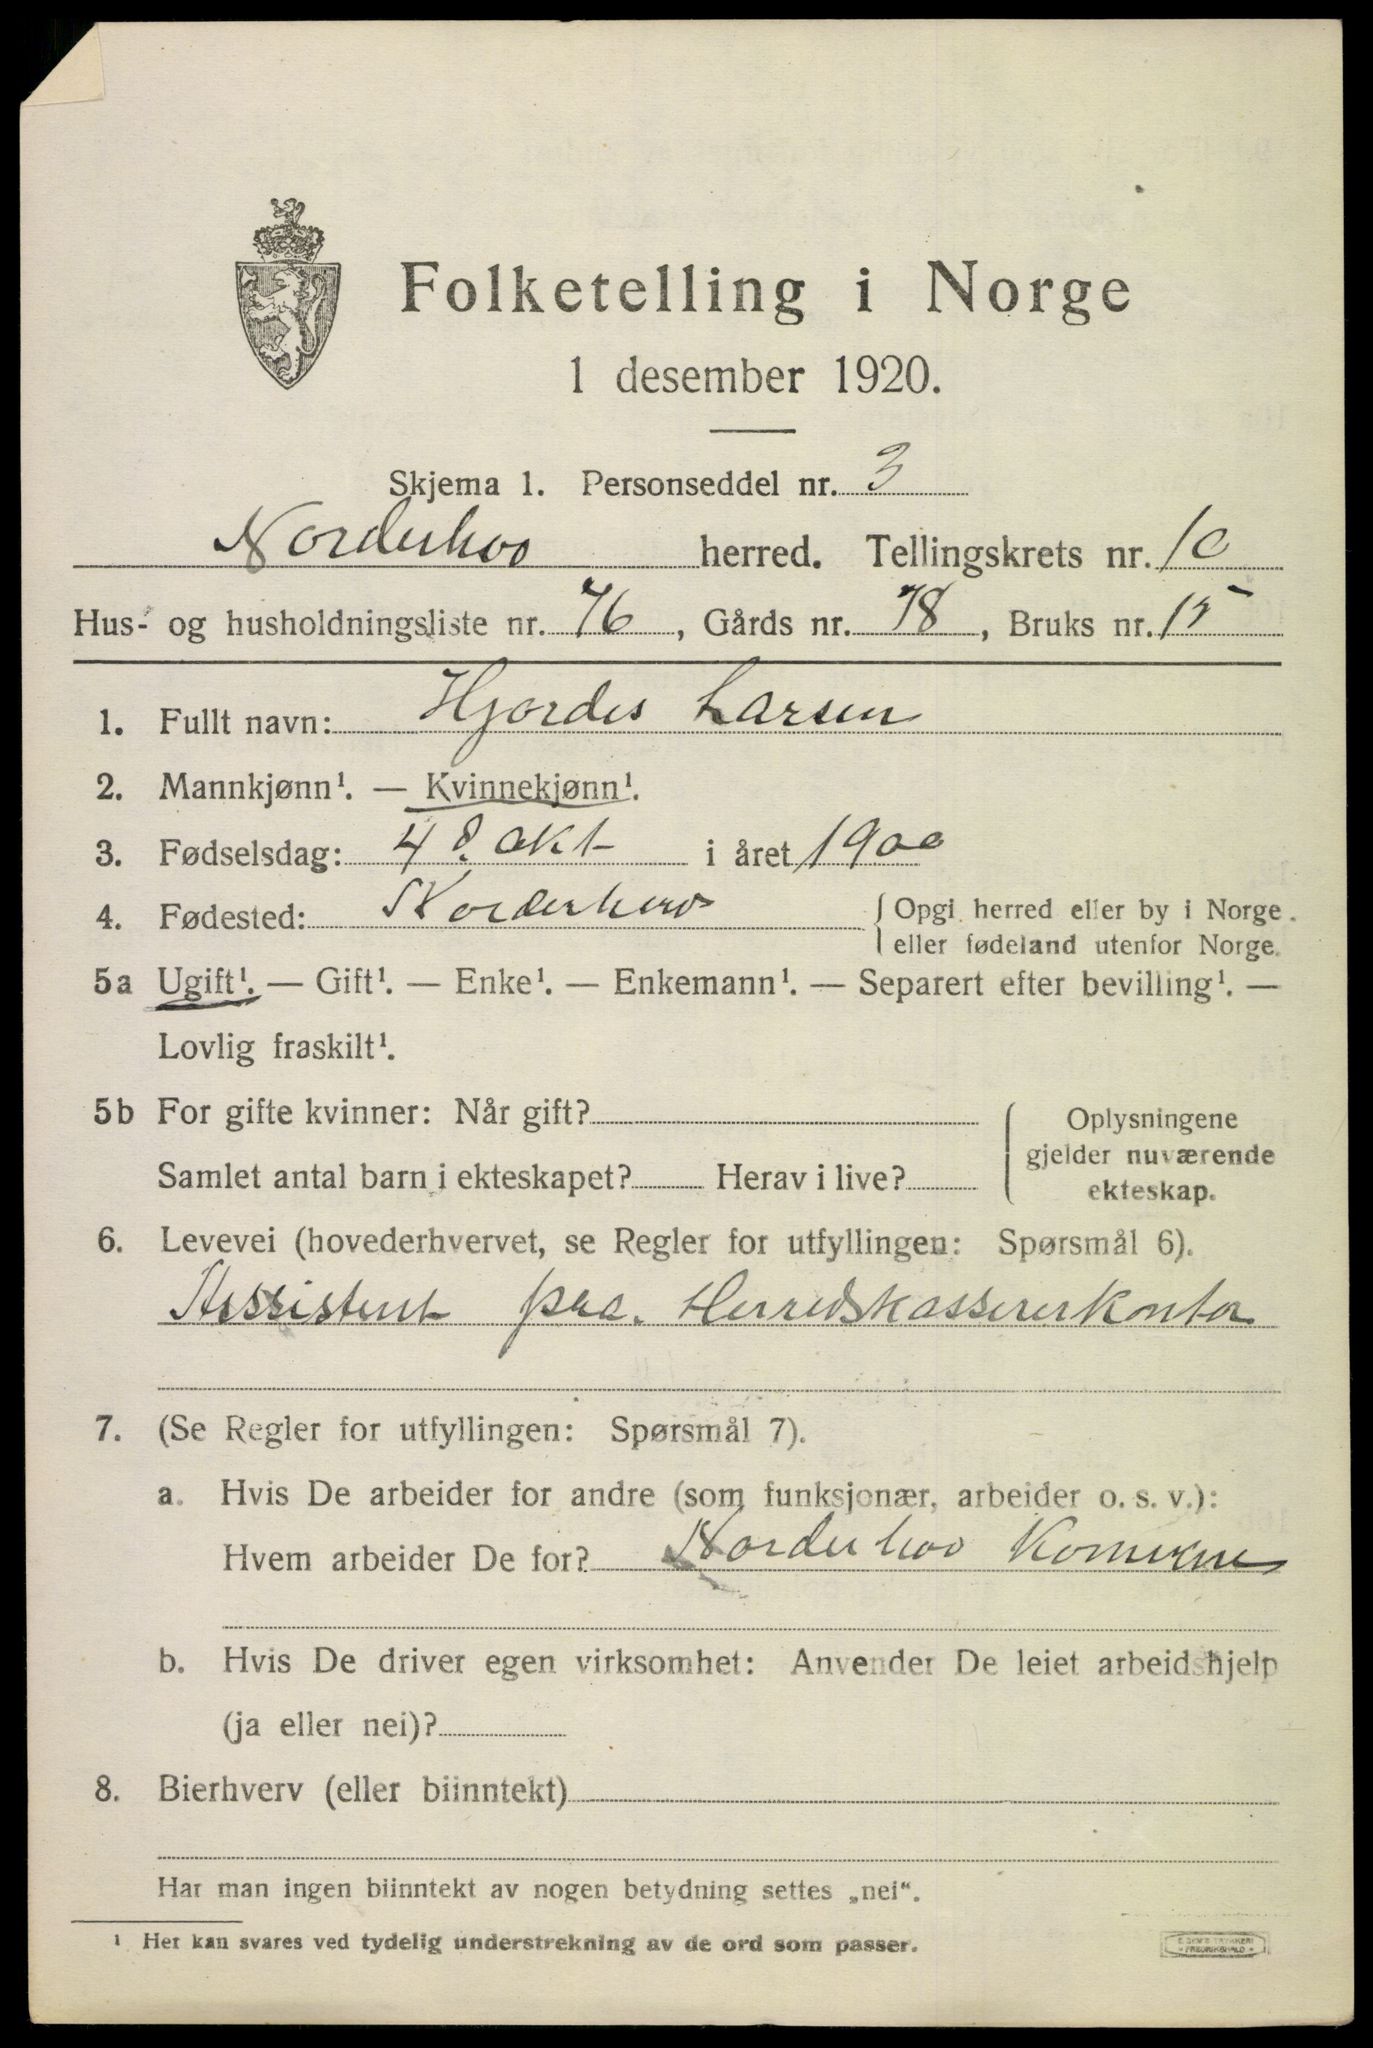 Folketelling i Norge
1 desember 1920.
Skjema 1. Personseddel nr. 3
Norderhov herred. Tellingskrets nr. 10
Hus- og husholdningsliste nr. 76, Gårds nr. 78, Bruks nr. 15
1. Fullt navn: Hjordes Larsen
2. Mannkjønn¹. — Kvinnekjønn¹.
3. Fødselsdag: 4 d. okt i året 1900
4. Fødested: Norderhov { Opgi herred eller by i Norge
eller fødeland utenfor Norge.
5a Ugift¹. — Gift¹. — Enke¹. — Enkemann¹. — Separert efter bevilling¹. —
Lovlig fraskilt¹.
5b For gifte kvinner: Når gift?
Samlet antal barn i ekteskapet? Herav i live?
Oplysningene
gjelder nuværende
ekteskap.
6. Levevei (hovederhvervet, se Regler for utfyllingen: Spørsmål 6).
Assistent paa. Herredskassererkontor
7. (Se Regler for utfyllingen: Spørsmål 7).
a. Hvis De arbeider for andre (som funksjonær, arbeider o. s. v.):
Hvem arbeider De for? Norderhov Komune
b. Hvis De driver egen virksomhet: Anvender De leiet arbeidshjelp
(ja eller nei)?
8. Bierhverv (eller biinntekt)
Har man ingen biinntekt av nogen betydning settes „nei“.
¹ Her kan svares ved tydelig understrekning av de ord som passer.